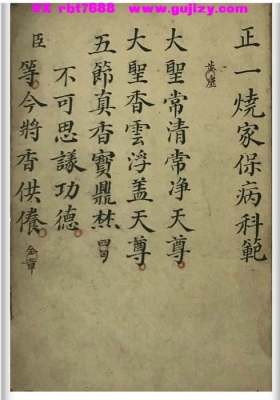 VX rbt7688 www.gujizy.com
正一燒家保病科範
黃虛
大聖常清常净天尊
大聖香雲浮盖天尊
五節真香寶鼎焚 四句
不可思議功德
臣等今將香供養 全章
www.gujizy.com